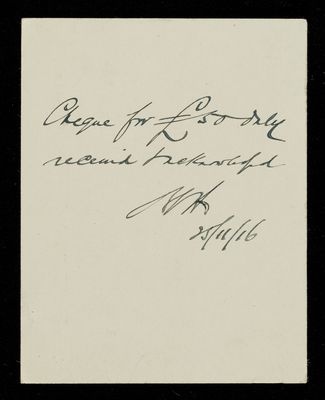 Cheque for £50 duly
received & acknowledged
25/11/16